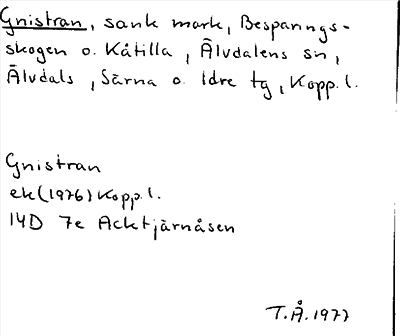 Gnistran, sank mark, Besparings-
skogen o. Kåtilla, Älvdalens sn,
Älvdals, Särna o. Idre tg, Kopp. l.
Gnistran
ek (1976) Kopp. l.
14D 7e Acktjärnåsen
T.Å. 1977